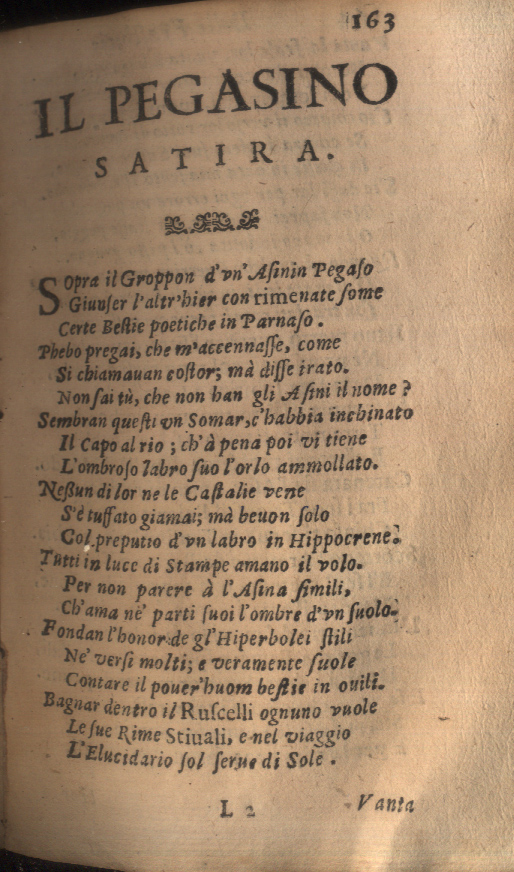 163
IL PEGASINO
SATIRA.
SOpra il Groppon d'vn' Aſinin Pegaſo
Giunſer l'altr'hier con rimenate ſome
Certe Beſtie poetiche in Parnaſo.
Phebo pregai, che m'accennaſſe, come
Si chiamauan coſtor; mà diſſe irato.
Non ſai tù, che non han gli Aſini il nome?
Sembran queſti vn Somar, c'habbia inchinato
Il Capo al rio; ch'à pena poi vi tiene
L'ombroſo labro ſuo l'orlo ammollato.
Neßun di lor ne le Caſtalie vene
S'è tuffato giamai; mà beuon ſolo
Col preputio d'vn labro in Hippocrene.
Tutti in luce di Stampe amano il volo.
Per non parere à l'Aſina ſimili,
Ch'ama nè parti ſuoi l'ombre d'vn ſuolo.
Fondan l'honor de gl'Hiperbolei ſtili
Ne' verſi molti; e veramente ſuole
Contare il pouer'huom beſtie in ouili.
Bagnar dentro il Ruſcelli ognuno vuole
Le ſue Rime Stiuali, e nel viaggio
L'Elucidario ſol ſerue di Sole.
L 2
Vanta